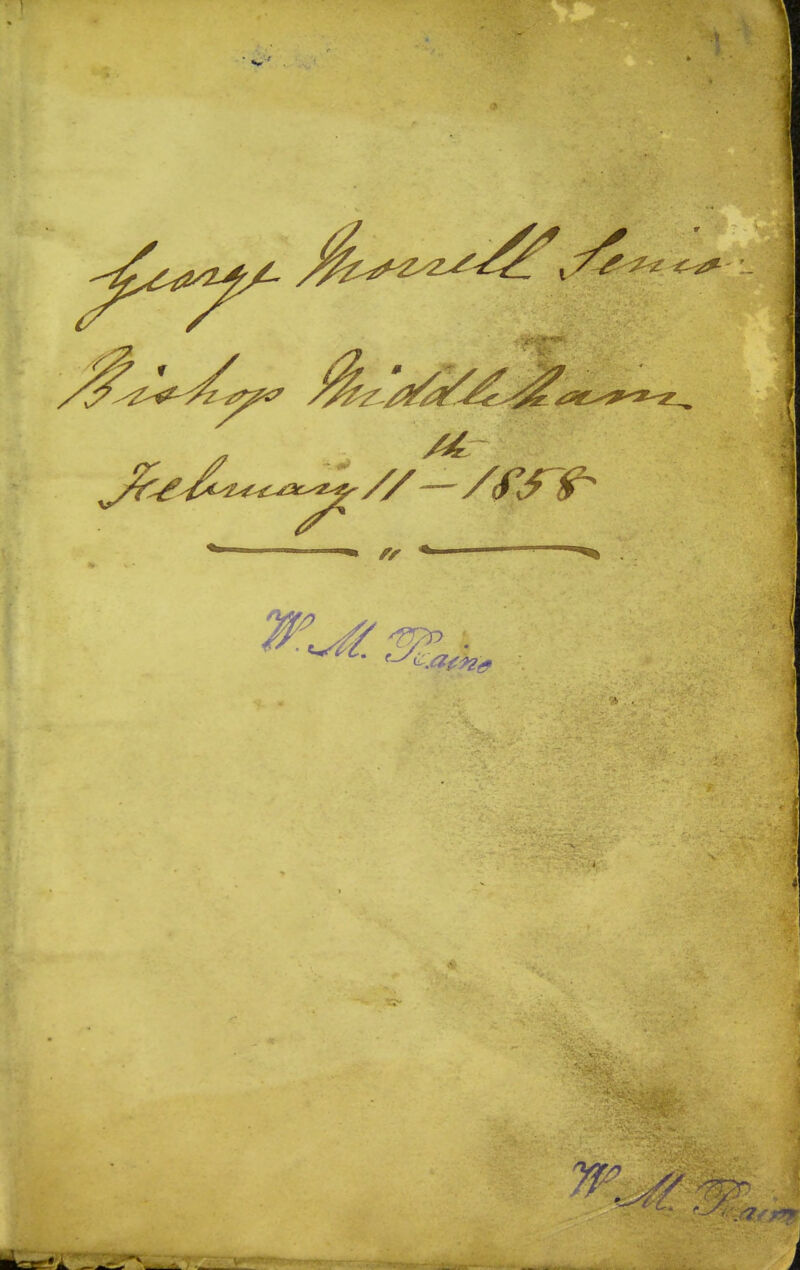 George Morrell Senio
Bishop Middleham
February 11th - 1858
"
W. M. Raine
W. M. Raine